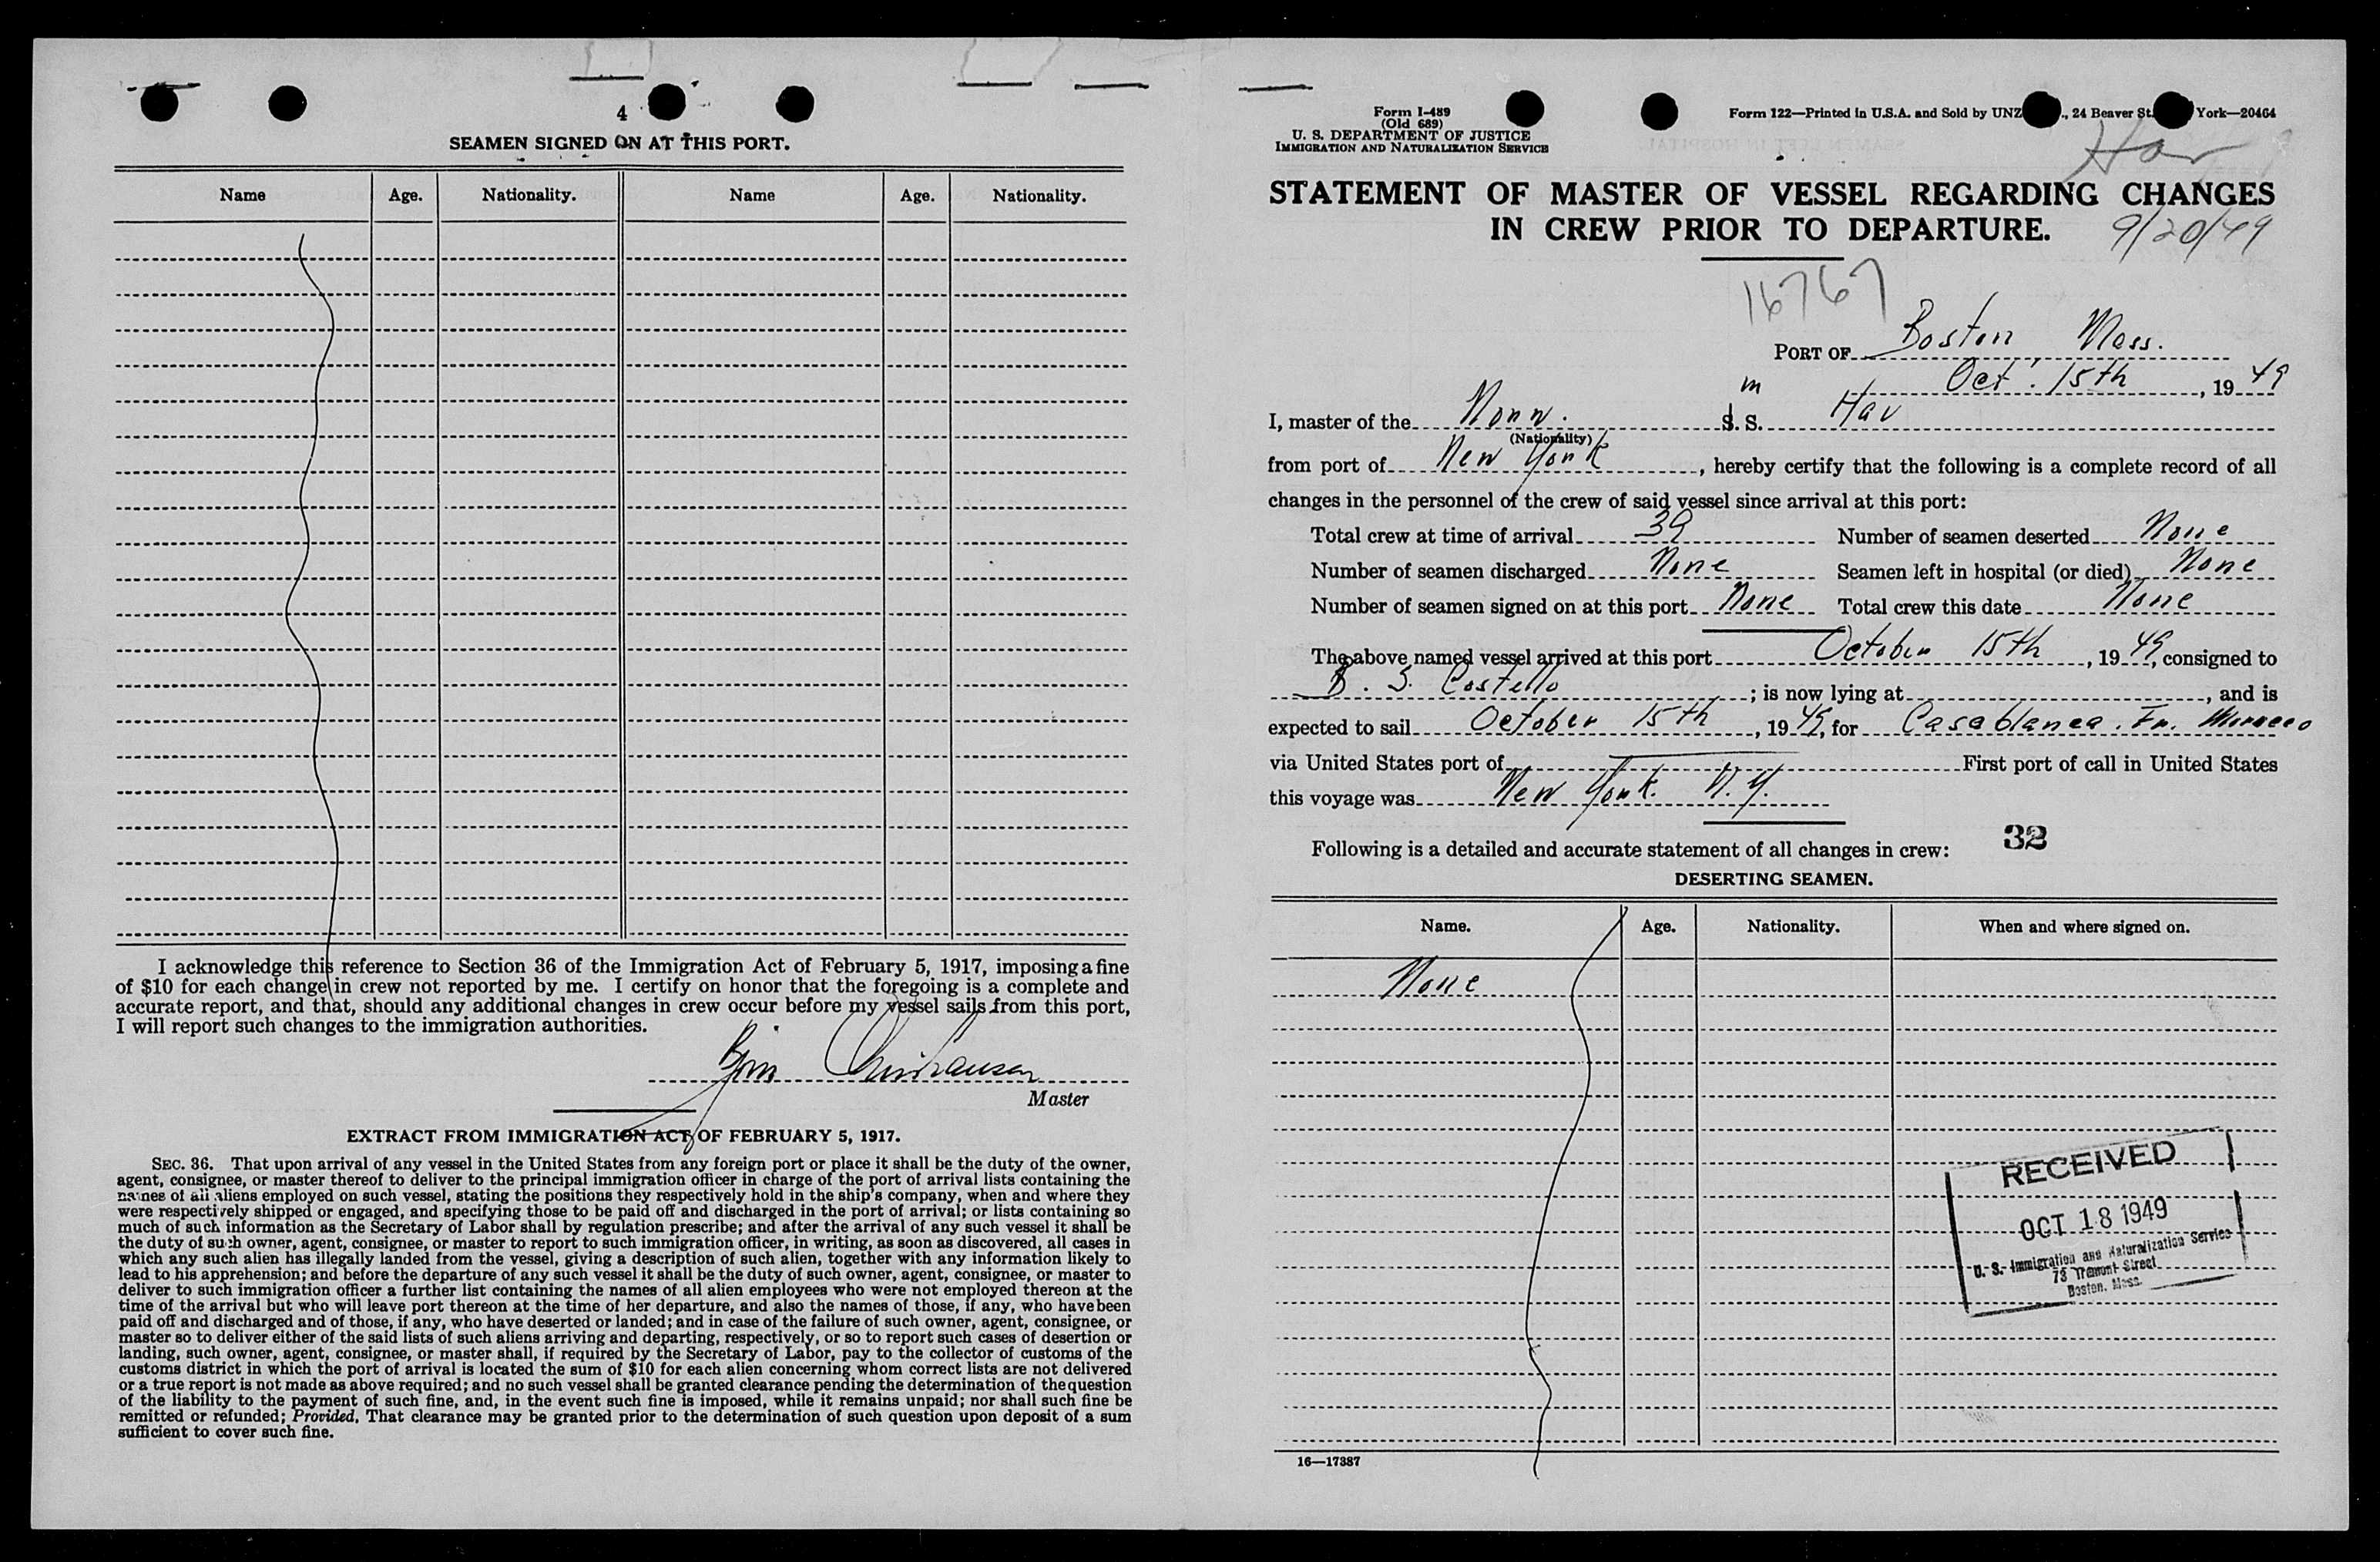 4
SEAMEN SIGNED ON AT THIS PORT.
Name Age. Nationality. Name Age. Nationality.
I acknowledge this reference to Section 36 of the Immigration Act of February 5, 1917, imposing a fine
of $10 for each change in crew not reported by me. I certify on honor that the foregoing is a complete and
accurate report, and that, should any additional changes in crew occur before my vessel sails from this port,
I will report such changes to the immigration authorities.
Master
EXTRACT FROM IMMIGRATION ACT OF FEBRUARY 5, 1917.
SEC. 36. That upon arrival of any vessel in the United States from any foreign port or place it shall be the duty of the owner,
agent, consignee, or master thereof to deliver to the principal immigration officer in charge of the port of arrival lists containing the
names of all aliens employed on such vessel, stating the positions they respectively hold in the ship's company, when and where they
were respectively shipped or engaged, and specifying those to be paid off and discharged in the port of arrival; or lists containing so
much of such information as the Secretary of Labor shall by regulation prescribe; and after the arrival of any such vessel it shall be
the duty of such owner, agent, consignee, or master to report to such immigration officer, in writing, as soon as discovered, all cases in
which any such alien has illegally landed from the vessel, giving a description of such alien, together with any information likely to
lead to his apprehension; and before the departure of any such vessel it shall be the duty of such owner, agent, consignee, or master to
deliver to such immigration officer a further list containing the names of all alien employees who were not employed thereon at the
time of the arrival but who will leave port thereon at the time of her departure, and also the names of those, if any, who have been
paid off and discharged and of those, if any, who have deserted or landed; and in case of the failure of such owner, agent, consignee, or
master so to deliver either of the said lists of such aliens arriving and departing, respectively, or so to report such cases of desertion or
landing, such owner, agent, consignee, or master shall, if required by the Secretary of Labor, pay to the collector of customs of the
customs district in which the port of arrival is located the sum of $10 for each alien concerning whom correct lists are not delivered
or a true report is not made as above required; and no such vessel shall be granted clearance pending the determination of the question
of the liability to the payment of such fine, and, in the event such fine is imposed, while it remains unpaid; nor shall such fine be
remitted or refunded; Provided, That clearance may be granted prior to the determination of such question upon deposit of a sum
sufficient to cover such fine.
Form I-489
(Old 689)
U. S. DEPARTMENT OF JUSTICE
IMMIGRATION AND NATURALIZATION SERVICE
Form 122—Printed in U.S.A. and Sold by UNZ ., 24 Beaver St. York—20464
Hav
STATEMENT OF MASTER OF VESSEL REGARDING CHANGES
IN CREW PRIOR TO DEPARTURE.
9/20/49
16767
PORT OF Boston Mass.
Oct. 15th, 1949
I, master of the Norw. m S. S. Hav
(Nationality)
from port of New York, hereby certify that the following is a complete record of all
changes in the personnel of the crew of said vessel since arrival at this port:
Total crew at time of arrival 39 Number of seamen deserted None
Number of seamen discharged None Seamen left in hospital (or died) None
Number of seamen signed on at this port None Total crew this date None
The above named vessel arrived at this port October 15th, 1949, consigned to
B. S. Costello; is now lying at , and is
expected to sail October 15th, 1949, for Casablanca. Fr. Morocco
via United States port of First port of call in United States
this voyage was New York. N.Y.
Following is a detailed and accurate statement of all changes in crew: 32
DESERTING SEAMEN.
Name. Age. Nationality. When and where signed on.
None
RECEIVED
OCT 18 1949
U. S. Immigration and Naturalization Service
73 Tremont Street
Boston, Mass.
16—17387